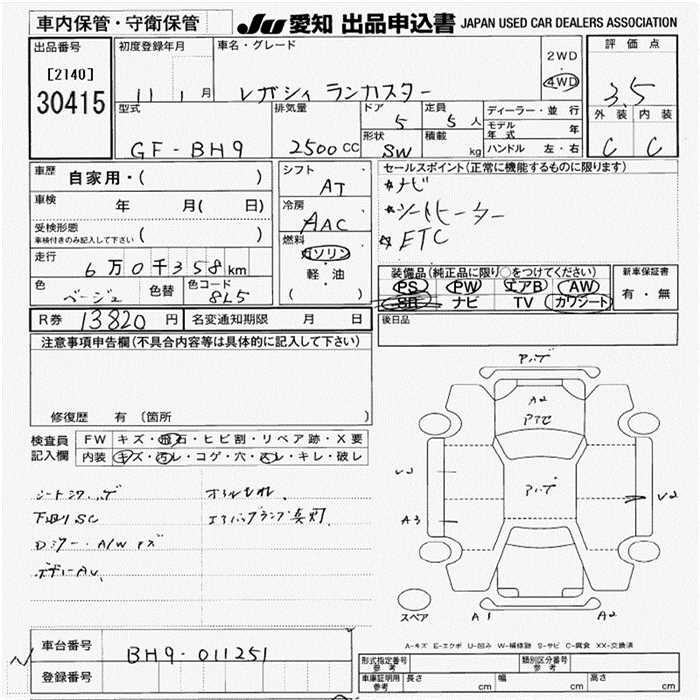 車内保管・守衛保管
JU 愛知 出品申込書 JAPAN USED CAR DEALERS ASSOCIATION
出品番号
[2140]
30415
初度登録年月
11 1 月
車名・グレード
レガシィ ランカスター
2WD
・
4WD
評価点
3.5
外装 内装
C C
型式
GF-BH9
排気量
2500 CC
ドア
5
定員
5 人
形状
SW
積載
kg
ディーラー・並行
モデル年式 年
ハンドル 左・右
車歴 自家用・( )
車検 年 月( 日)
受検形態
車検付きのみ記入して下さい ( )
走行 6万0千358km
色 ベージュ 色替 色コード 8L5
シフト
AT
冷房
AAC
燃料
ガソリン
軽・油
( )
セールスポイント(正常に機能するものに限ります)
☆ナビ
☆シートヒーター
☆ETC
装備品(純正品に限り○をつけてください)
PS PW エアB AW
SR ナビ TV カワシート
新車保証書
有・無
R券 13820 円 名変通知期限 月 日
後日品
注意事項申告欄(不具合内容等は具体的に記入して下さい)
修復歴 有 〔箇所 〕
検査員
記入欄
FW キズ・飛石・ヒビ割・リペア跡・X要
内装 キズ・汚レ・コゲ・穴・スレ・キレ・破レ
下回りSC
ボデーAU
アハゲ
A2
アハゲ
U2
A3
U2
スペア
A1
A2
A-キズ E-エクボ U-凹み W-補修跡 S-サビ C-腐食 XX-交換済
車台番号 BH9-011251
登録番号
形式指定番号
参考
類別区分番号
参考
車庫証明用
参考
長さ cm 幅 cm 高さ cm